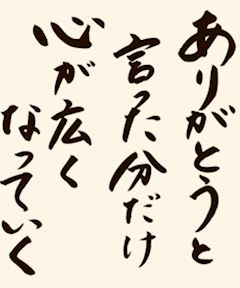 ありがとうと
言った分だけ
心が広く
なっていく